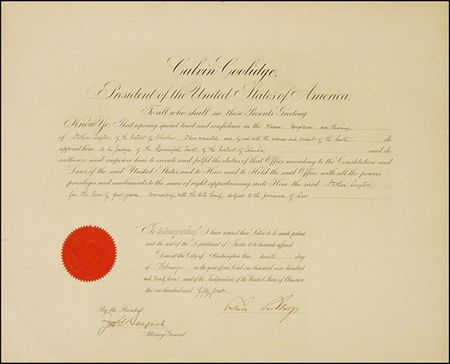 Calvin Coolidge,
President of the United States of America.
To all who shall see these Presents Greeting
Know Ye; That reposing special trust and confidence in the Wisdom, Uprightness and Learning
of of the District of Columbia I have nominated, and by and with the advice and consent of the Senate do
appoint him to be Judge of the Municipal Court of the District of Columbia and do
authorize and empower him to execute and fulfil the duties of that Office according to the Constitution and
Laws of the said United States and to Have and to Hold the said Office, with all the powers
privileges and emoluments to the same of right appertaining unto Him the said
for the term of four years, commencing with the date hereof, subject to the provisions of law.
In testimony whereof I have caused these Letters to be made patent
and the seal of the Department of Justice to be hereunto affixed
Done at the City of Washington this day
of February in the year of our Lord one thousand nine hundred
and and of the Independence of the United States of America
the one hundred and fifty
By the President
Attorney General